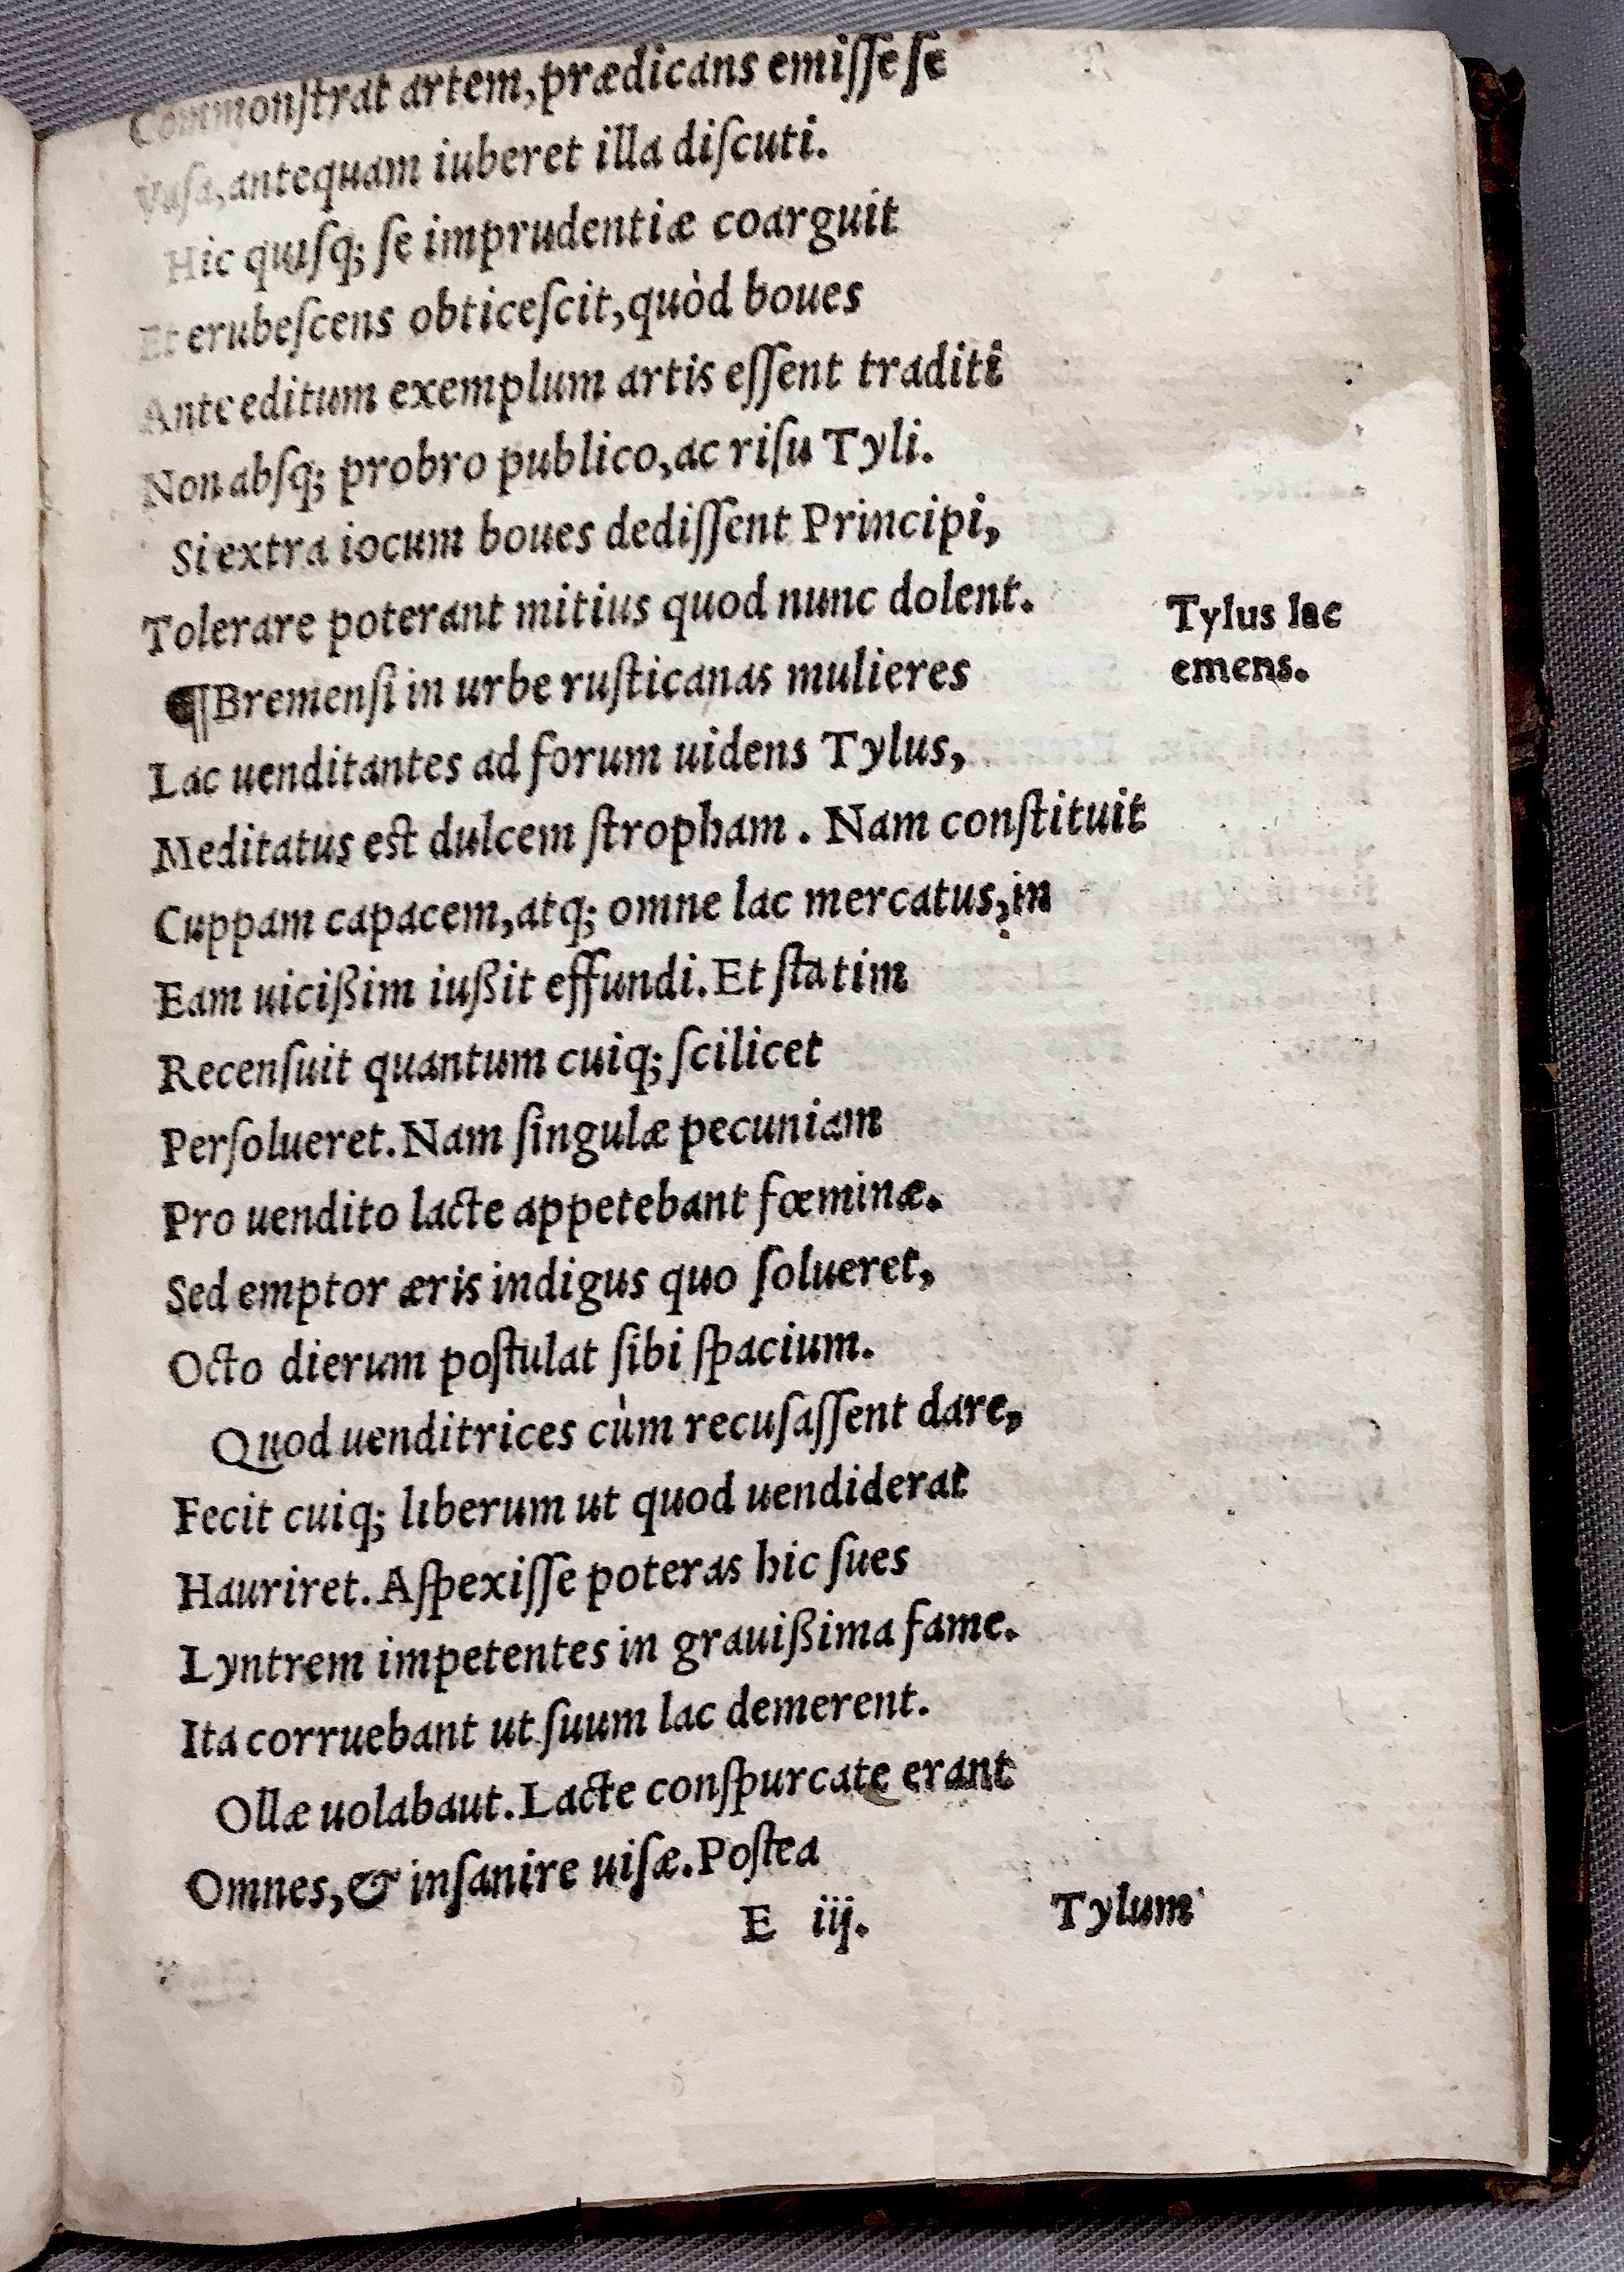 Commonſtrat artem, prædicans emiſſe ſe
Vaſa, antequam iuberet illa diſcuti.
Hic quiſq; ſe imprudentiæ coarguit
Et erubeſcens obticeſcit, quòd boues
Ante editum exemplum artis eſſent traditi
Non abſq; probro publico, ac riſu Tyli.
Si extra iocum boues dediſſent Principi,
Tolerare poterant mitius quod nunc dolent.
Tylus lac
emens.
¶Bremenſi in urbe ruſticanas mulieres
Lac uenditantes ad forum uidens Tylus,
Meditatus est dulcem ſtropham. Nam conſtituit
Cuppam capacem, atq; omne lac mercatus, in
Eam uicißim iußit effundi. Et ſtatim
Recenſuit quantum cuiq; ſcilicet
Perſolueret. Nam ſingulæ pecuniam
Pro uendito lacte appetebant fœminæ.
Sed emptor æris indigus quo ſolueret,
Octo dierum poſtulat ſibi ſpacium.
Quod uenditrices cùm recuſaſſent dare,
Fecit cuiq; liberum ut quod uendiderat
Hauriret. Aſpexiſſe poteras hic ſues
Lyntrem impetentes in grauißima fame.
Ita corruebant ut ſuum lac demerent.
Ollæ uolabaut. Lacte conſpurcate erant
Omnes, & inſanire uiſæ. Poſtea
E iij.
Tylum